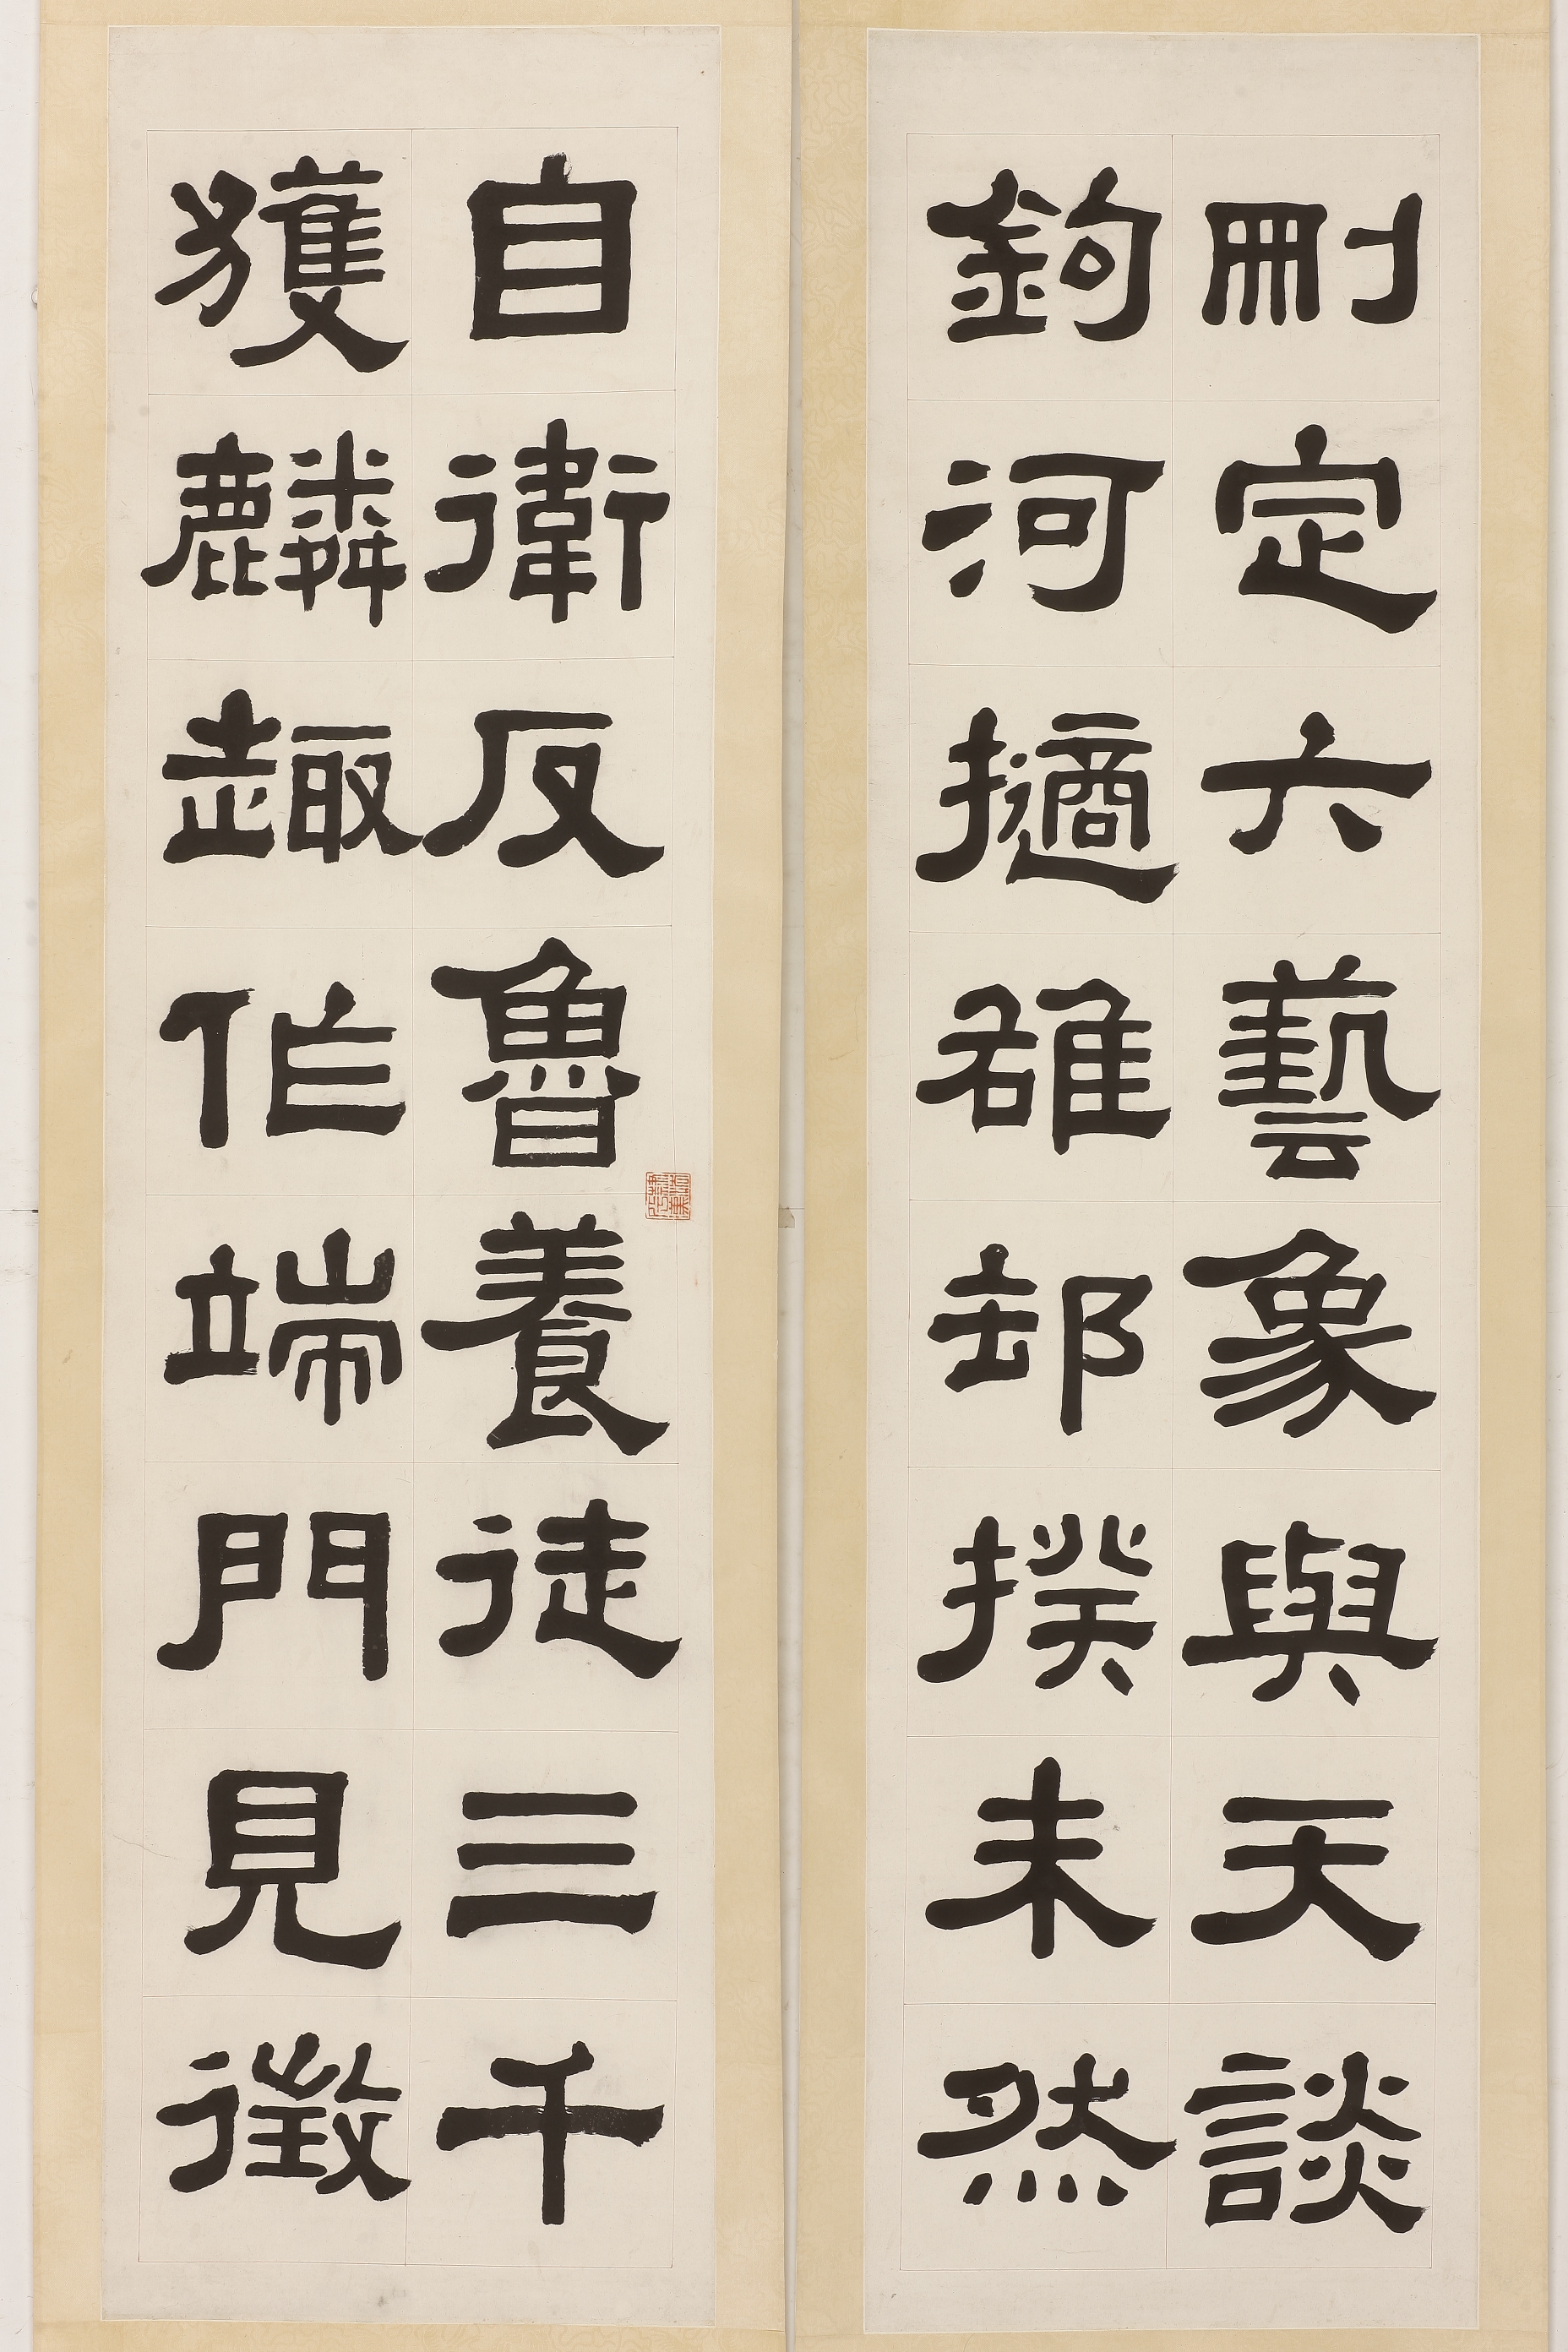 刪定六藝象與天談
鉤河擿雒却揆未然
自衛反魯養徒三千
獲麟趣作端門見徵